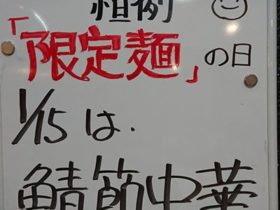 恒例
「限定麺」の日
1/15は.
鯖節中華